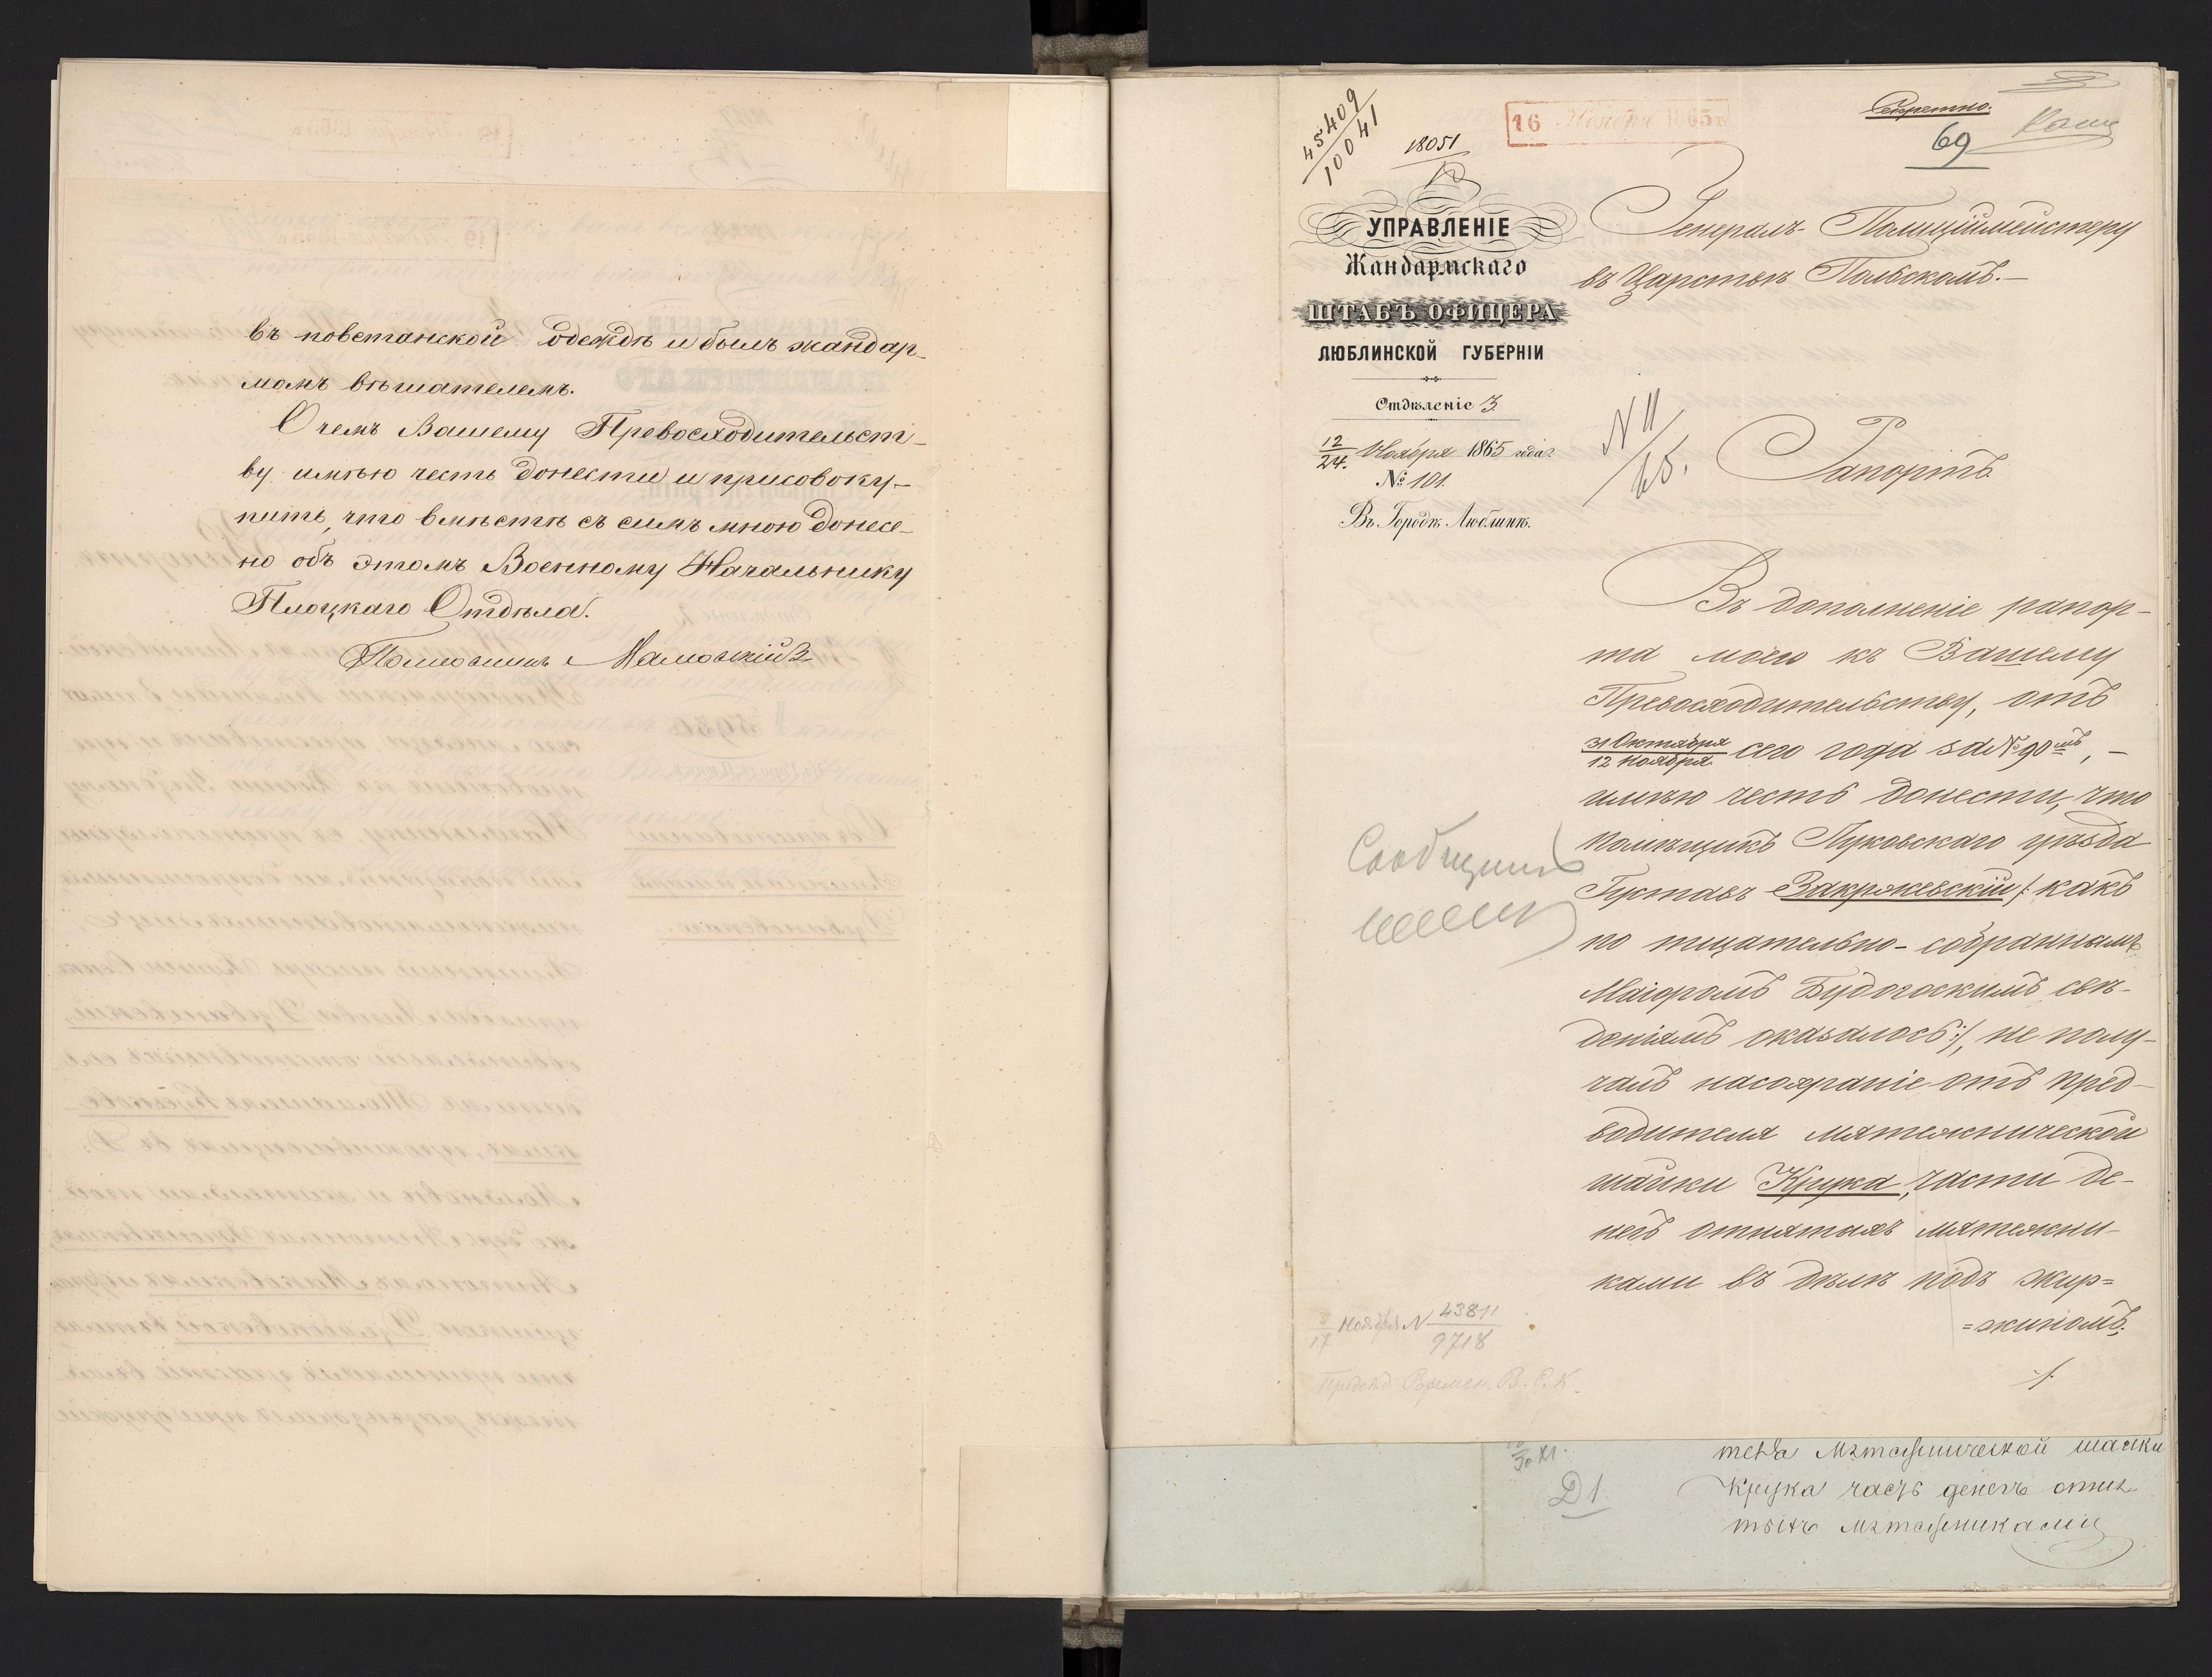 въ повстанской одеждѣ и былъ жандар-
момъ вѣшателемъ.
О чемъ Вашему Превосходительст-
ву имѣю честь донести и присовоку-
пить, что вмѣстѣ съ симъ мною донесе-
но объ этомъ Военному Начальнику
Плоцкаго Отдѣла.
45409
10041
18051
16 Ноября 1865 г.
Секретно.
69
УПРАВЛЕНІЕ
Жандармскаго
ШТАБЪ ОФИЦЕРА
ЛЮБЛИНСКОЙ ГУБЕРНІИ
Отдѣленіе 3
12/24 Ноября 1865 года
№ 101.
Въ Городѣ Люблинѣ.
Генералъ-Полиціймейстеру
въ Царствѣ Польскомъ.—
N 11/65.
Рапортъ
Въ дополненіе рапор-
та моего къ Вашему
Превосходительству, отъ
31 Октября/12 Ноября сего года за № 90мъ, —
имѣю честь донести, что
помѣщикъ Луковскаго уѣзда
Густавъ Закржевскій /: какъ
по тщательно-собраннымъ
Маіоромъ Будогоскимъ свѣ-
деніямъ оказалось :/, не полу-
чалъ на сохраніе отъ пред-
водителя мятежнической
шайки Крука, части де-
негъ отнятыхъ мятежни-
ками въ дѣлѣ подъ Жир-
=жиномъ.
Сообщить
5/17 Ноября N 43811
9718
Д 1.
теля мятежнической шайки
Крука часть денегъ отня-
тыхъ мятежниками